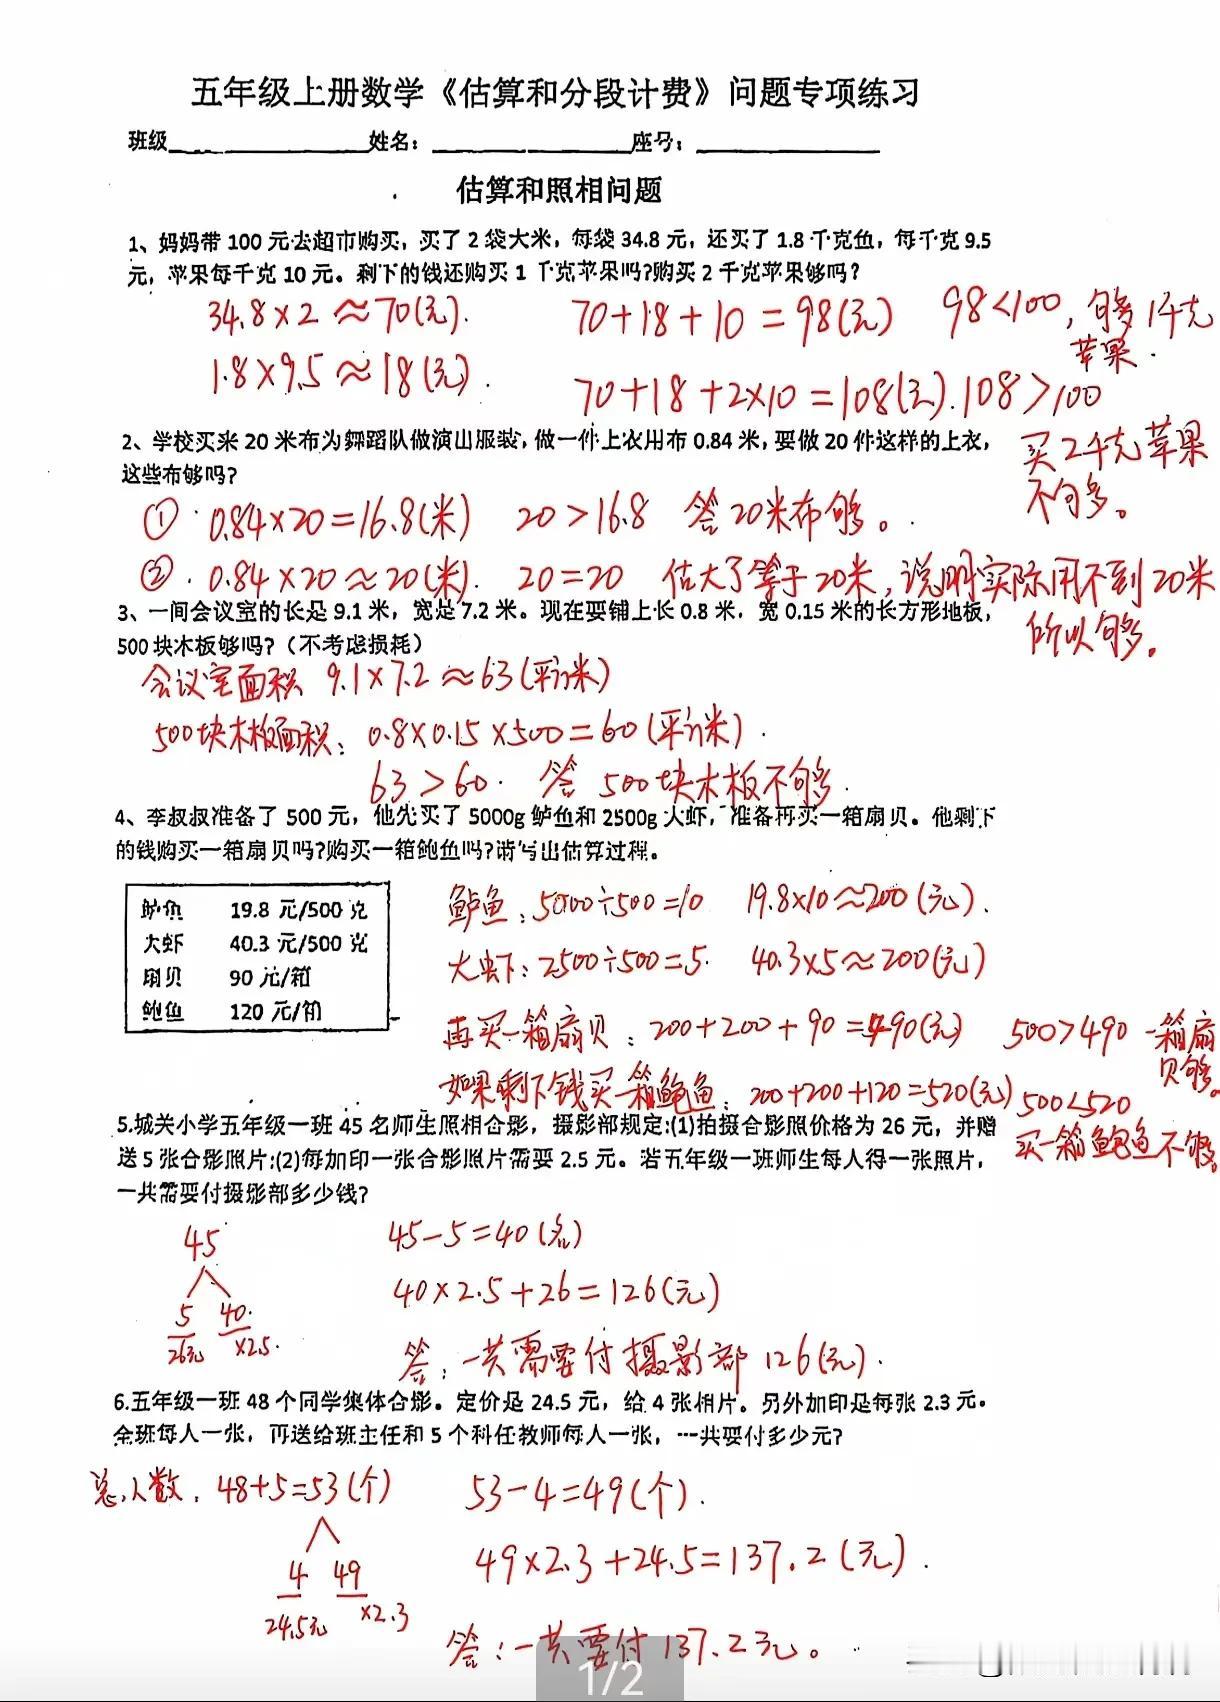 五年级上册数学《估算和分段计费》问题专项练习
班级 姓名： 座号：
估算和照相问题
1、妈妈带 100 元去超市购买，买了 2 袋大米，每袋 34.8 元，还买了 1.8 千克鱼，每千克 9.5
元，苹果每千克 10 元。剩下的钱还购买 1 千克苹果吗？购买 2 千克苹果够吗？
34.8×2≈70(元).
70+18+10=98(元)
98<100，够多1千克
苹果.
1.8×9.5≈18(元).
70+18+2×10=108(元).108>100
买2千克苹果
不够。
2、学校买来 20 米布为舞蹈队做演出服装，做一件上衣用布 0.84 米，要做 20 件这样的上衣，
这些布够吗？
① 0.84×20=16.8(米) 20>16.8 答20米布够。
② 0.84×20≈20(米). 20=20 估大了等于20米，说明实际用不到20米
所以够。
3、一间会议室的长是 9.1 米，宽是 7.2 米。现在要铺上长 0.8 米，宽 0.15 米的长方形地板，
500 块木板够吗？（不考虑损耗）
会议室面积 9.1×7.2≈63(平方米)
500块木板面积：0.8×0.15×500=60(平方米).
63>60. 答 500块木板不够.
4、李叔叔准备了 500 元，他先买了 5000g 鲈鱼和 2500g 大虾，准备再买一箱扇贝。他剩下
的钱购买一箱扇贝吗？购买一箱鲍鱼吗？请写出估算过程。
鲈鱼 19.8 元/500 克
大虾 40.3 元/500 克
扇贝 90 元/箱
鲍鱼 120 元/箱
鲈鱼：5000÷500=10 19.8×10≈200(元).
大虾：2500÷500=5. 40.3×5≈200(元)
再买一箱扇贝：200+200+90=490(元) 500>490 一箱扇
贝够。
如果剩下钱买一箱鲍鱼：200+200+120=520(元) 500<520
买一箱鲍鱼不够。
5.城关小学五年级一班 45 名师生照相合影，摄影部规定:(1)拍摄合影照价格为 26 元，并赠
送 5 张合影照片;(2)每加印一张合影照片需要 2.5 元。若五年级一班师生每人得一张照片，
一共需要付摄影部多少钱?
45
5 40
26元 ×2.5.
45-5=40(名)
40×2.5+26=126(元)
答：一共需要付摄影部 126(元).
6.五年级一班 48 个同学集体合影。定价是 24.5 元，给 4 张相片。另外加印是每张 2.3 元。
全班每人一张，再送给班主任和 5 个科任教师每人一张，一共要付多少元?
总人数：48+5=53(个)
4 49
24.5元 ×2.3
53-4=49(个).
49×2.3+24.5=137.2(元).
答：一共要付137.2元。
1/2